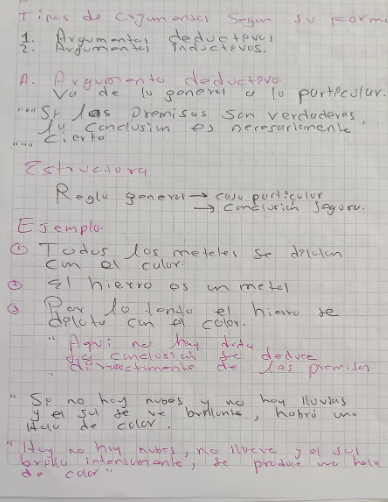 Tipos de Argumentos Según su Forma
1. Argumentos deductivos
2. Argumentos inductivos.
A. Argumento deductivo.
Va de lo general a lo particular.
"Si las premisas son verdaderas,
la conclusión es necesariamente
cierta"
Estructura
Regla general → caso particular
→ conclusión segura.
Ejemplo.
① Todos los metales se dilatan
con el calor.
② El hierro es un metal
③ Por lo tanto el hierro se
dilata con el calor.
"Aquí no hay duda
la conclusión se deduce
directamente de las premisas
"Si no hay nubes y no hay lluvias
y el sol se ve brillante, habrá una
de calor.
"Hoy no hay nubes, no llueve y el sol
brilla intensamente, se produce una
de calor"